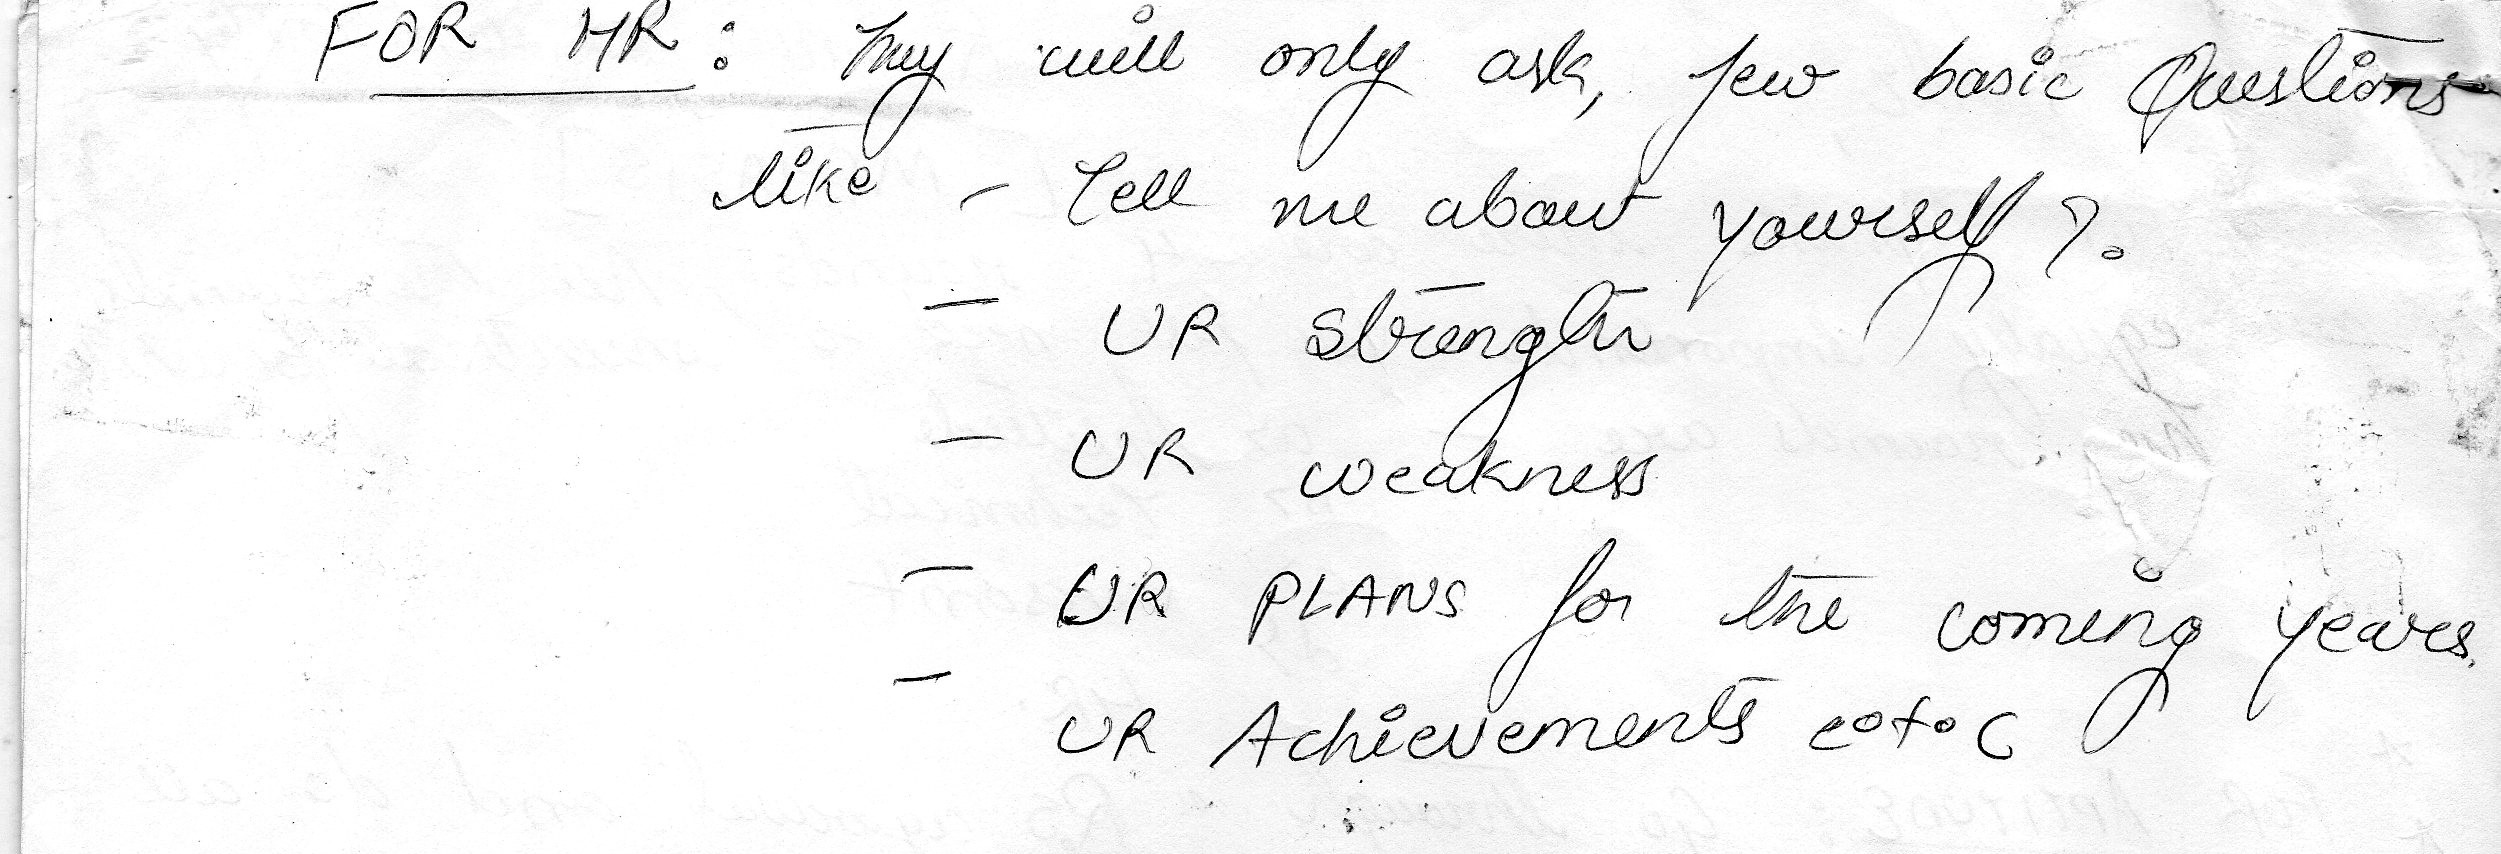 FOR HR: They will only ask, few basic Questions
like - Tell me about yourself?
- UR strength
- UR weakness
- UR PLANS for the coming years.
- UR Achievements e.t.c